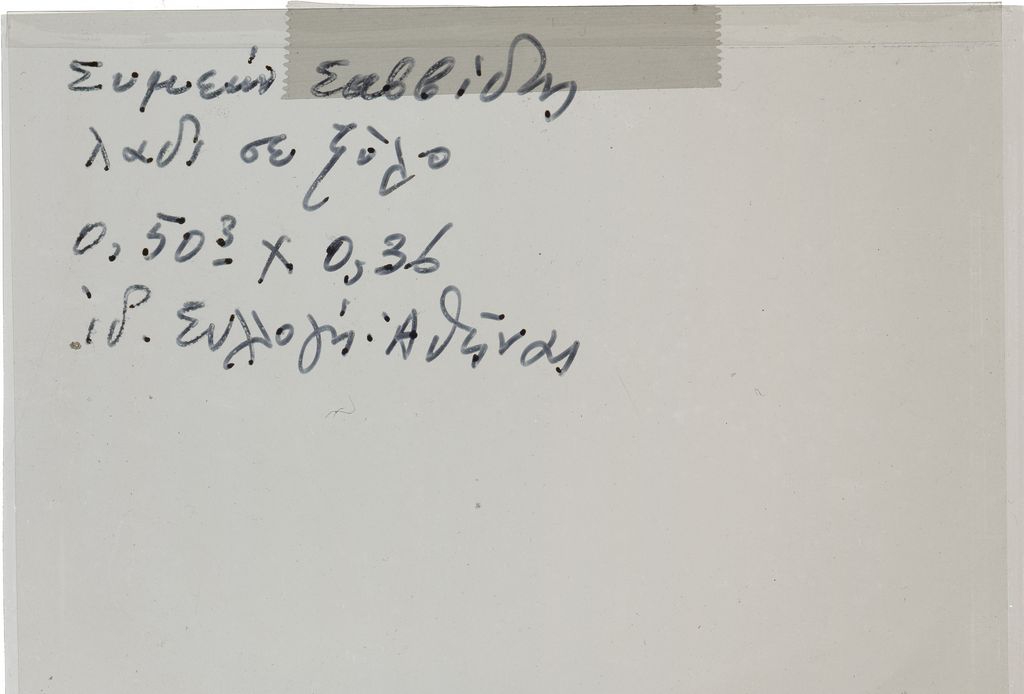 Συμεών Σαββίδης
λάδι σε ξύλο
0,50³ x 0,36
ἰδ. Συλλογή· Ἀθήνας